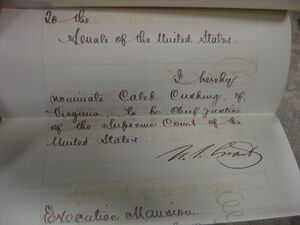 To the
Senate of the United States.
I hereby
nominate Caleb Cushing of
Virginia, to be Chief Justice
of the Supreme Court of the
United States
U. S. Grant
Executive Mansion.